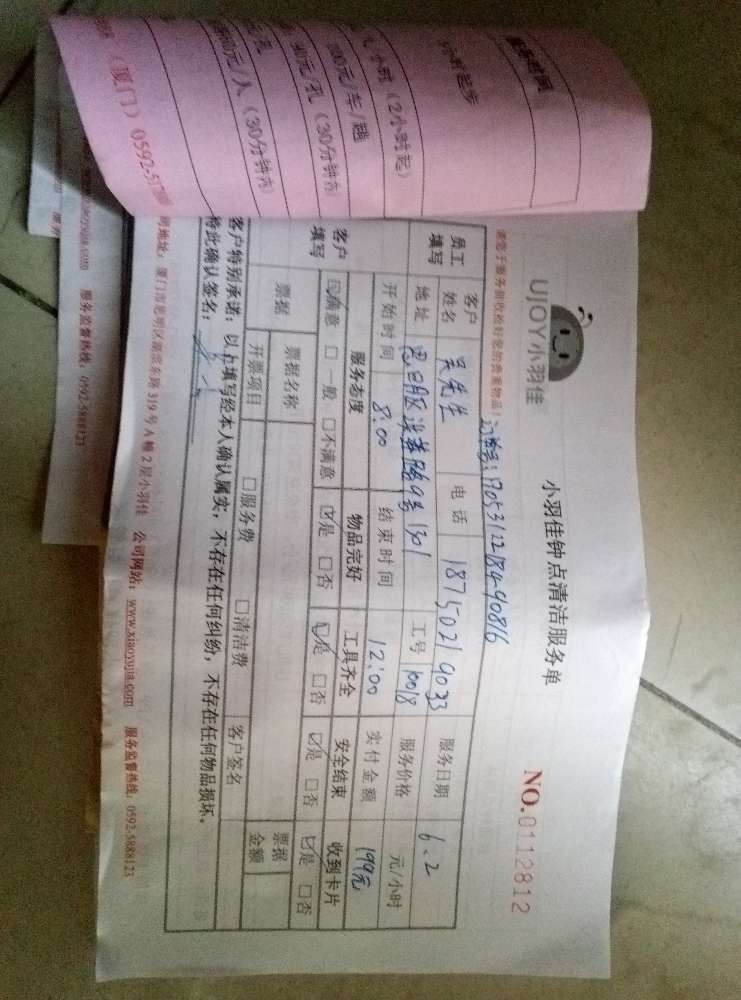 UJOY小羽佳
小羽佳钟点清洁服务单
NO.0112812
请您于服务前收拾好您的贵重物品!
员工填写
客户姓名 吴先生 电话 18750219033 服务日期 6.2
地址 思明区 9号1301 工号 10018 服务价格 元/小时
开始时间 8:00 结束时间 12:00 实付金额 199元
客户填写
服务态度 物品完好 工具齐全 安全结束 收到卡片
☑满意 □一般 □不满意 ☑是 □否 ☑是 □否 ☑是 □否 ☑是 □否
票据 票据名称 票据金额
开票项目 □服务费 □清洁费 客户签名
客户特别承诺:以上填写经本人确认属实,不存在任何纠纷,不存在任何物品损坏。
特此确认签名:
司地址:厦门市思明区湖滨东路319号A幢2层小羽佳 公司网站:www.xiaoyujia.com 服务监督热线:0592-5888123
服务时间
小时起步
小时(2小时起)
元/车/趟
元/孔(30分钟内)
元/人(30分钟内)
(厦门)0592-517
xiaoyujia.com 服务监督热线:0592-5888123